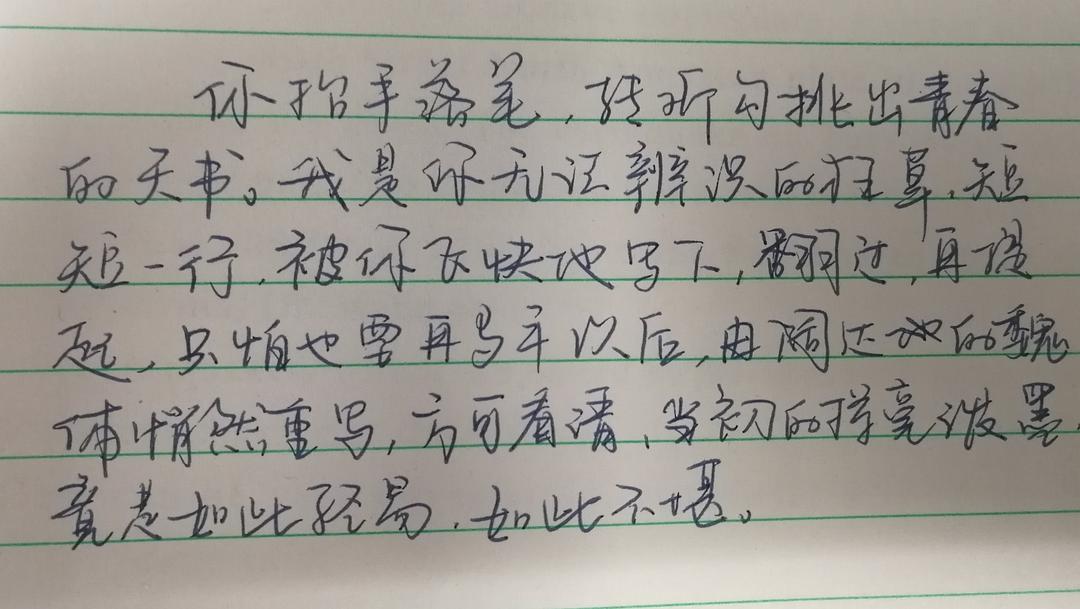 你抬手落笔,转折勾挑出青春
的天书。我是你无证辨识的狂草,短
短一行,被你飞快地写下,翻过,再提
起,只怕也要再多年以后,由阔达地的魏
体悄然重写,方可看清,当初的挥毫泼墨,
竟是如此轻易,如此不堪。